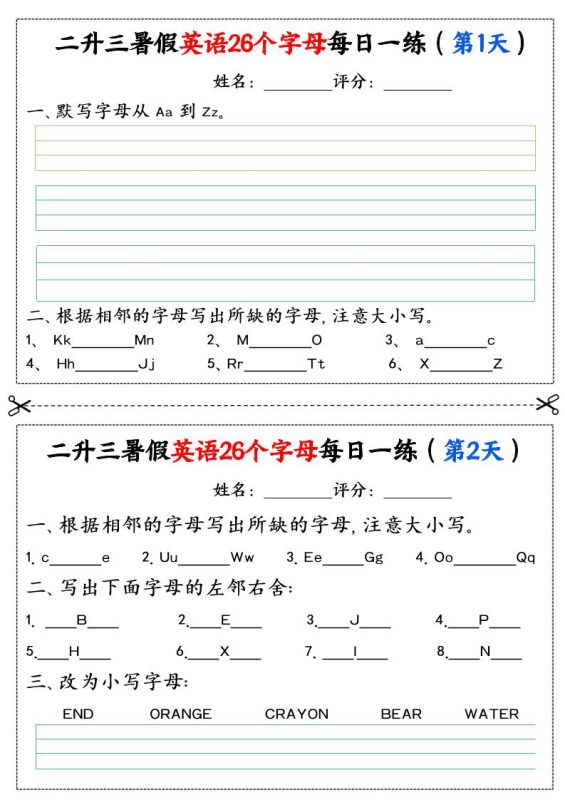 二升三暑假英语26个字母每日一练（第1天）
姓名：________评分：________
一、默写字母从 Aa 到 Zz。
二、根据相邻的字母写出所缺的字母，注意大小写。
1、 Kk________Mn 2、 M________O 3、 a________c
4、 Hh________Jj 5、Rr________Tt 6、 X________Z
二升三暑假英语26个字母每日一练（第2天）
姓名：________评分：________
一、根据相邻的字母写出所缺的字母，注意大小写。
1. c______e 2. Uu______Ww 3. Ee_____Gg 4. Oo_______Qq
二、写出下面字母的左邻右舍：
1. ____B____ 2.____E____ 3.____J____ 4.____P____
5.____H____ 6.____X____ 7. ____I____ 8.____N____
三、改为小写字母：
END ORANGE CRAYON BEAR WATER